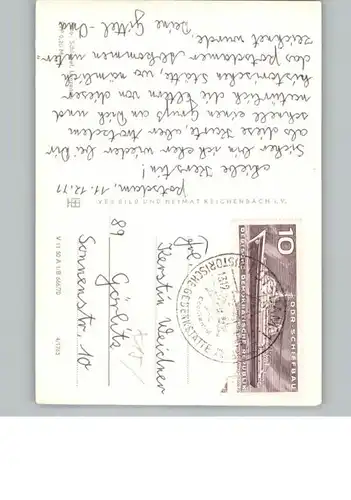 Potsdam, 11.12.71
Liebe Kerstin!
Sicher bin ich eher wieder bei Dir
als diese Karte, aber trotzdem
schnell einen Gruß an Dich und
natürlich die Eltern von dieser
historischen Stätte, wo nämlich
das Potsdamer Abkommen unter-
zeichnet wurde.
Deine Gittel-Oma
VEB BILD UND HEIMAT REICHENBACH I. V.
V 11 50 A 1/B 666/70
4/1762
10
DDR-SCHIFFBAU
DEUTSCHE DEMOKRATISCHE REPUBLIK
HISTORISCHE GEDENKSTÄTTE
Frl.
Kerstin Weidner
89 Görlitz
Sonnenstr. 10